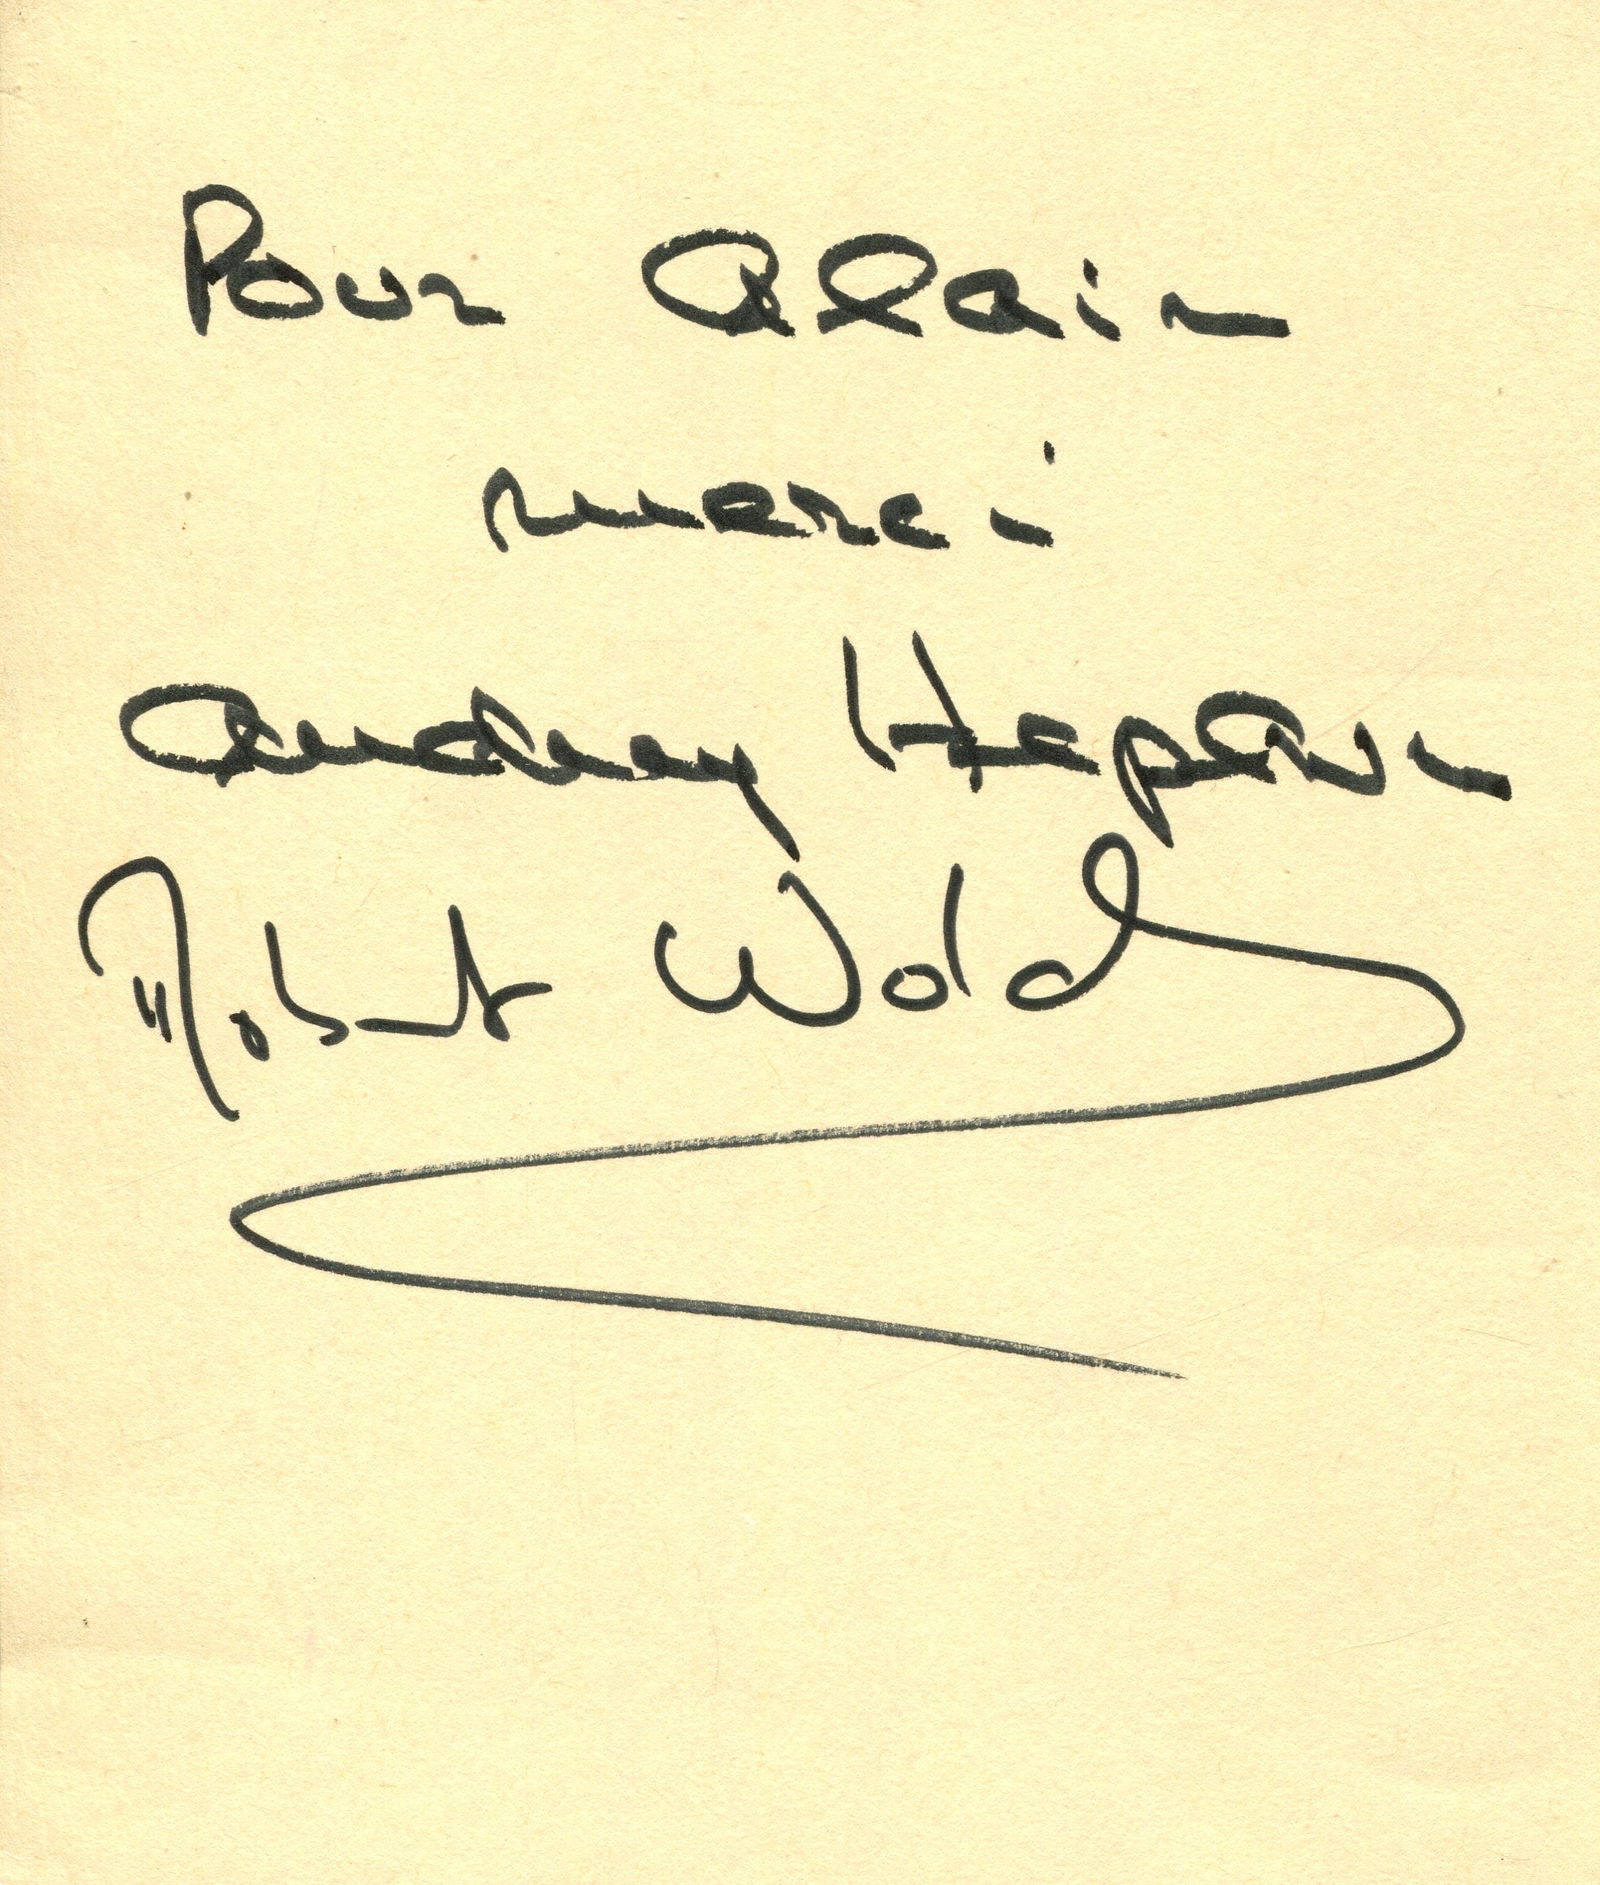 Pour Alain
merci
Audrey Hepburn
Robert Wolders